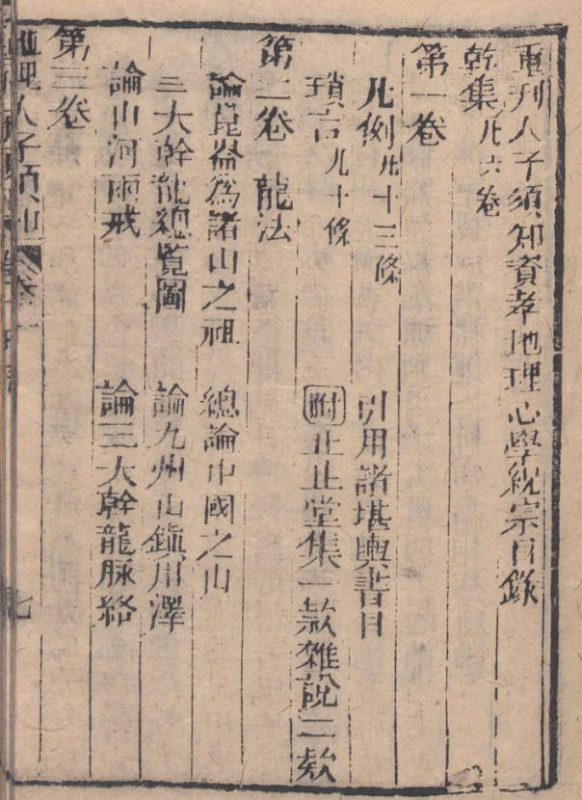 重刊人子須知資孝地理心學統宗目錄
乾集 凡六卷
第一卷
凡例 凡十三條 引用諸堪輿書目
瑣言 凡十條 附止止堂集一款雜說二款
第二卷 龍法
論崑崙為諸山之祖 總論中國之山
三大幹龍總覽圖 論九州山鎮川澤
論山河兩戒 論三大幹龍脉絡
第三卷
地理人子須知
七